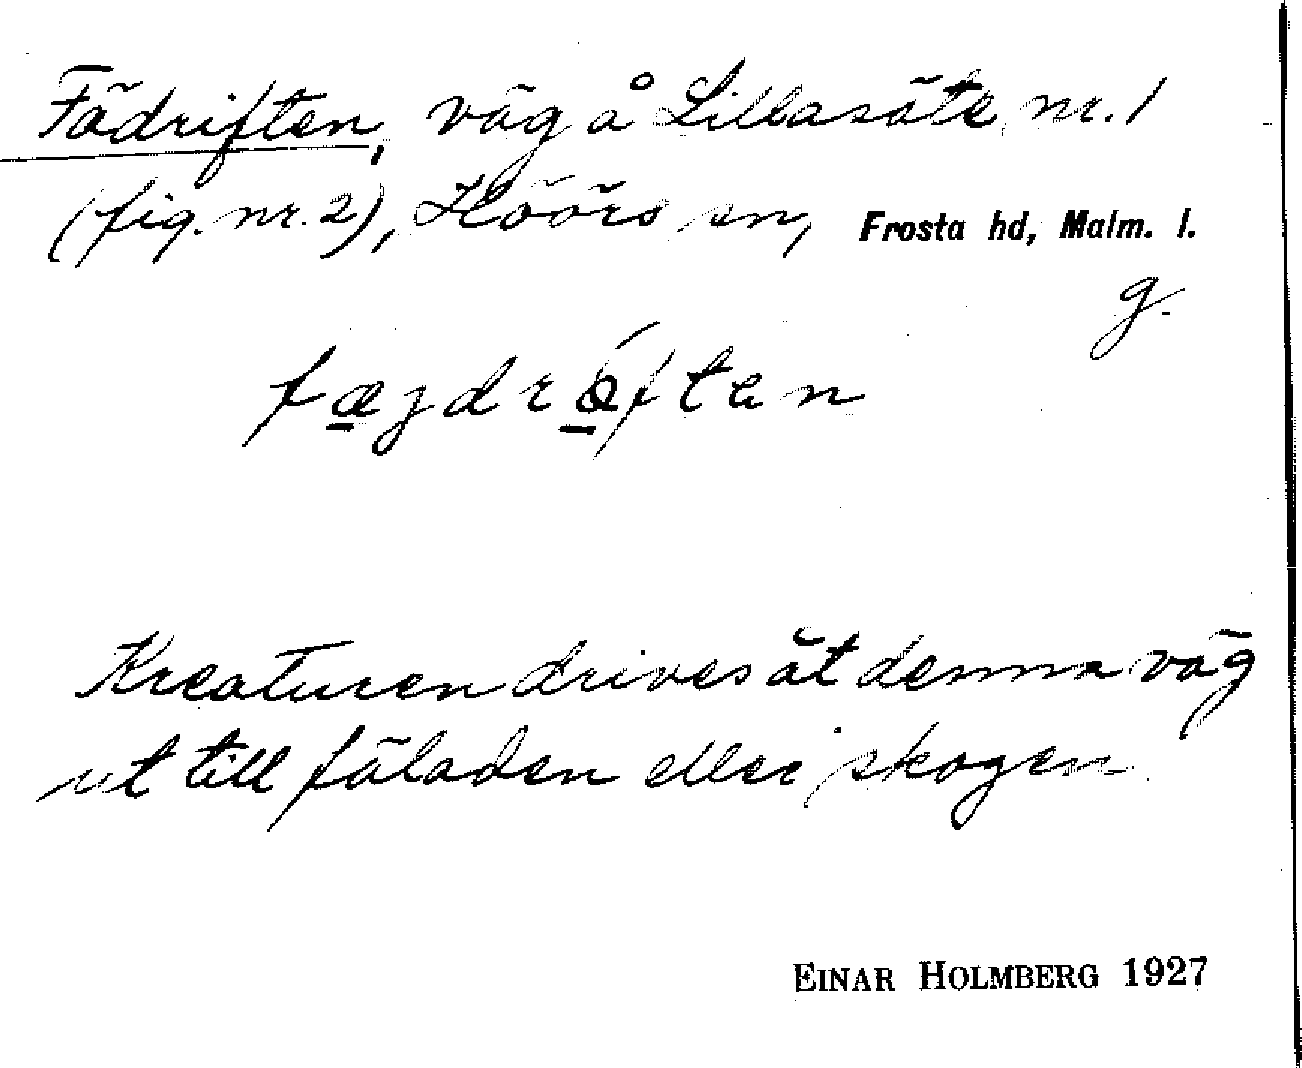 Fädriften, väg å Lillasäte nr. 1
(fig. nr. 2), Höörs sn, Frosta hd, Malm. l.
g.
Kreaturen drives åt denna väg
ut till fäladen eller skogen
EINAR HOLMBERG 1927